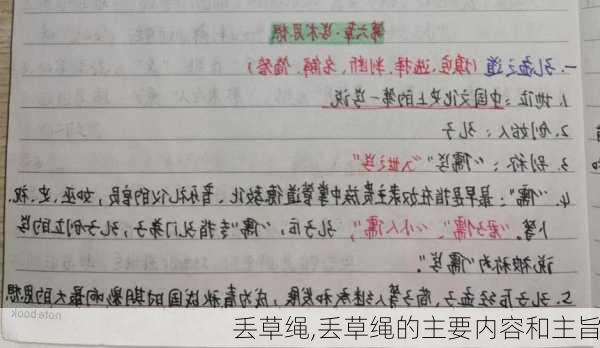 第六章·学术思想
一、孔孟之道（填空、选择、判断、名解、简答）
1. 地位：中国文化史上的第一学说
2. 创始人：孔子
3. 别称："儒学""入世之学"
4. "儒"：最早是指在奴隶主贵族中掌管道德教化、音乐礼仪的官员，如巫、史、祝、
卜等。"君子儒"、"小人儒"，孔子后，"儒"专指孔门弟子，孔子创立的学
说被称为"儒学"。
5. 孔子后经孟子、荀子等人继承和发展，成为春秋战国时期影响最大的思想
notebook
丢草绳,丢草绳的主要内容和主旨